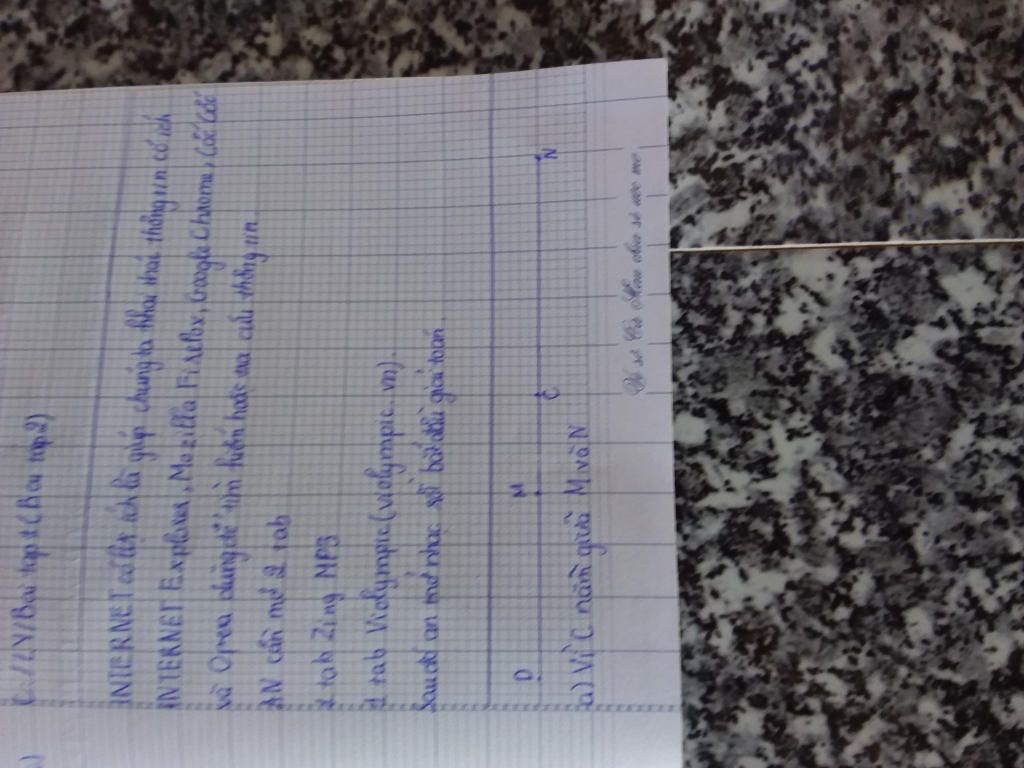 C:/LY/Bai tap1(Bai tap2)
INTERNET có lợi ích là giúp chúng ta khai thác thông tin có ích
INTERNET Explorer, Mozilla Firefox, Google Chrome, Cốc Cốc
và Opera dùng để tìm kiếm hoặc tra cứu thông tin
AN cần mở 2 tab
1 tab Zing MP3
1 tab Violympic (violympic.vn).
Sau đó an mở nhạc rồi bắt đầu giải toán.
D M C N
a) Vì C nằm giữa M và N